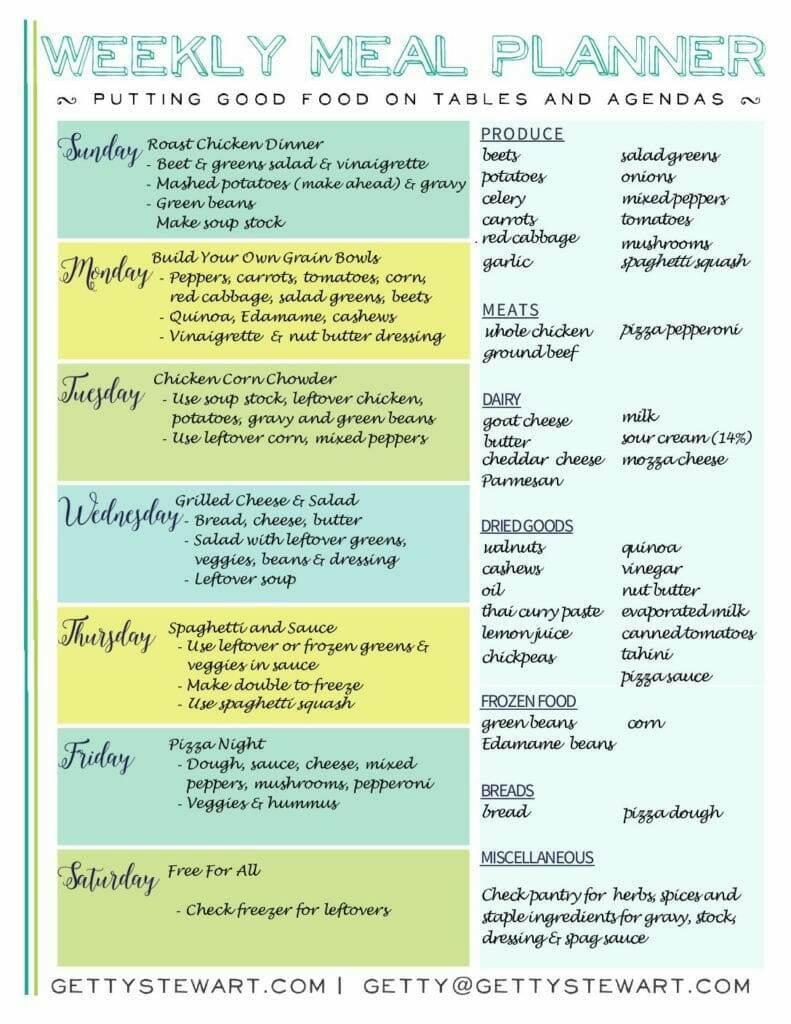 WEEKLY MEAL PLANNER
~ PUTTING GOOD FOOD ON TABLES AND AGENDAS ~
Sunday
Roast Chicken Dinner
- Beet & greens salad & vinaigrette
- Mashed potatoes (make ahead) & gravy
- Green beans
Make soup stock
Monday
Build Your Own Grain Bowls
- Peppers, carrots, tomatoes, corn,
red cabbage, salad greens, beets
- Quinoa, Edamame, cashews
- Vinaigrette & nut butter dressing
Tuesday
Chicken Corn Chowder
- Use soup stock, leftover chicken,
potatoes, gravy and green beans
- Use leftover corn, mixed peppers
Wednesday
Grilled Cheese & Salad
- Bread, cheese, butter
- Salad with leftover greens,
veggies, beans & dressing
- Leftover soup
Thursday
Spaghetti and Sauce
- Use leftover or frozen greens &
veggies in sauce
- Make double to freeze
- Use spaghetti squash
Friday
Pizza Night
- Dough, sauce, cheese, mixed
peppers, mushrooms, pepperoni
- Veggies & hummus
Saturday
Free For All
- Check freezer for leftovers
PRODUCE
beets
potatoes
celery
carrots
red cabbage
garlic
salad greens
onions
mixed peppers
tomatoes
mushrooms
spaghetti squash
MEATS
whole chicken
ground beef
pizza pepperoni
DAIRY
goat cheese
butter
cheddar cheese
Parmesan
milk
sour cream (14%)
mozza cheese
DRIED GOODS
walnuts
cashews
oil
thai curry paste
lemon juice
chickpeas
quinoa
vinegar
nut butter
evaporated milk
canned tomatoes
tahini
pizza sauce
FROZEN FOOD
green beans
Edamame beans
corn
BREADS
bread
pizza dough
MISCELLANEOUS
Check pantry for herbs, spices and
staple ingredients for gravy, stock,
dressing & spag sauce
GETTYSTEWART.COM | GETTY@GETTYSTEWART.COM